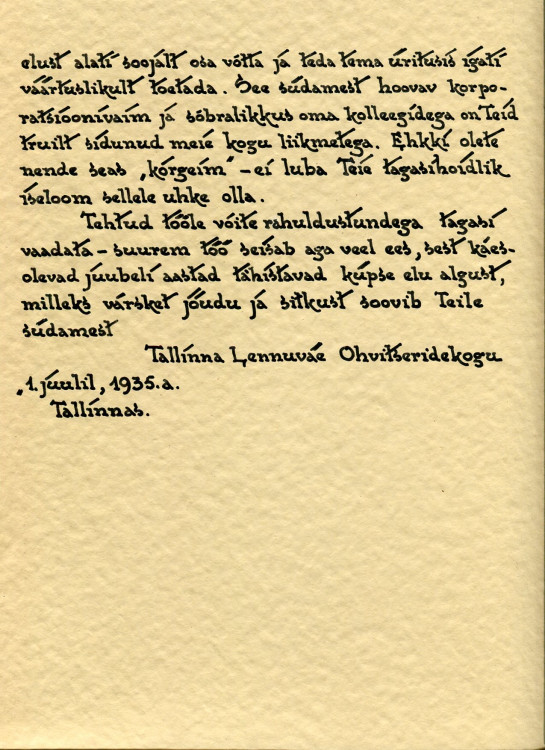 elust alati soojalt osa võtta ja teda tema üritusis igati
väärtuslikult toetada. See südamest hoovav korpo-
ratsioonivaim ja sõbralikkus oma kolleegidega on Teid
truilt sidunud meie kogu liikmetega. Ehkki olete
nende seas „kõrgeim“ – ei luba Teie tagasihoidlik
iseloom sellele uhke olla.
Tehtud tööle võite rahuldustundega tagasi
vaadata – suurem töö seisab aga veel ees, sest käes-
olevad juubeli aastad tähistavad küpse elu algust,
milleks värsket jõudu ja sitkust soovib Teile
südamest
Tallinna Lennuväe Ohvitseridekogu
„1. juulil, 1935.a.
Tallinnas.